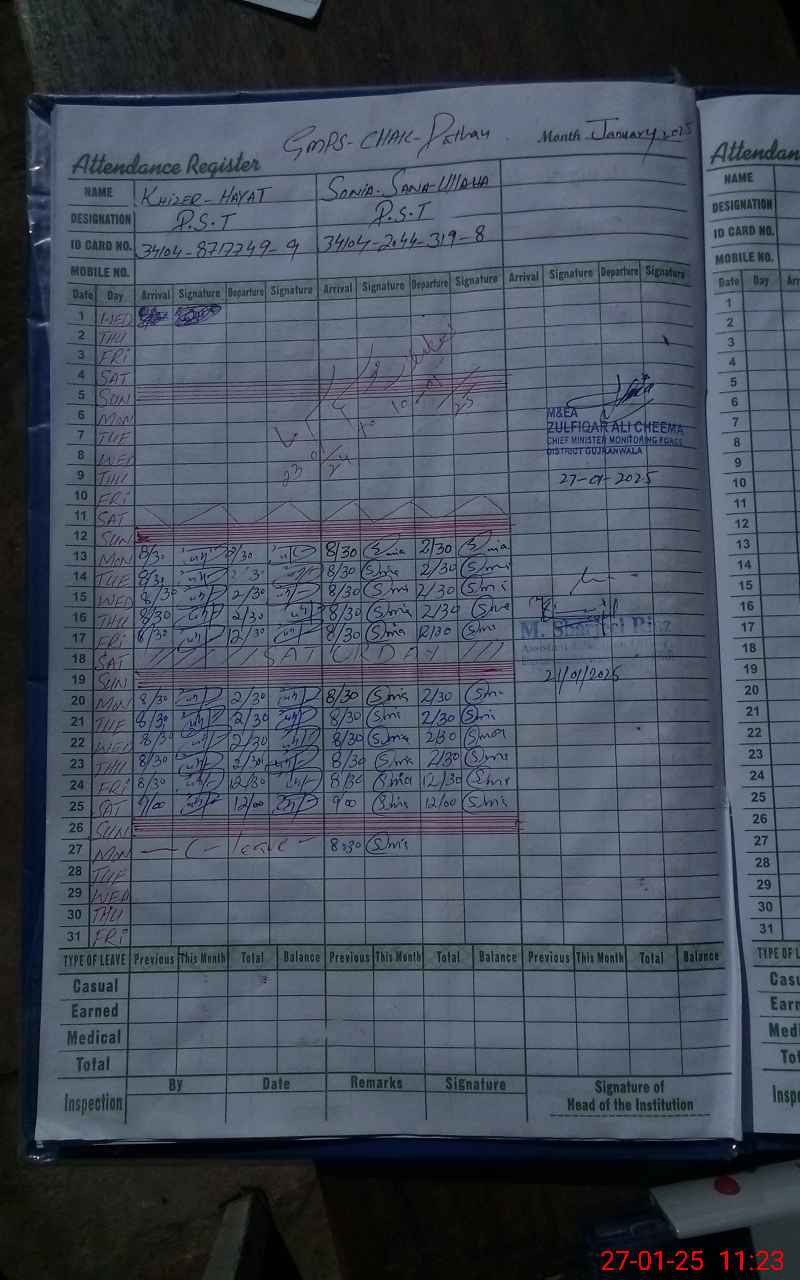 GMPS-CHAK-Pathan
Month January 2025
Attendance Register
NAME KHIZER-HAYAT SONIA-SANA-Ullaha
DESIGNATION P.S.T P.S.T
ID CARD NO. 34104-8717749-9 34104-2044-319-8
MOBILE NO.
Date Day Arrival Signature Departure Signature Arrival Signature Departure Signature Arrival Signature Departure Signature
1 WED
2 THU
3 FRI
4 SAT
5 SUN
6 MON
7 TUE
8 WED
9 THU
10 FRI
11 SAT
12 SUN
13 MON 8/30 2/30 8/30 Sonia 2/30 Sonia
14 TUE 8/30 2/30 8/30 Sonia 2/30 Sonia
15 WED 8/30 2/30 8/30 Sonia 2/30 Sonia
16 THU 8/30 2/30 8/30 Sonia 2/30 Sonia
17 FRI 8/30 12/30 8/30 Sonia 12/30 Sonia
18 SAT SATURDAY
19 SUN
20 MON 8/30 2/30 8/30 Sonia 2/30 Sonia
21 TUE 8/30 2/30 8/30 Sonia 2/30 Sonia
22 WED 8/30 2/30 8/30 Sonia 2/30 Sonia
23 THU 8/30 2/30 8/30 Sonia 2/30 Sonia
24 FRI 8/30 12/30 8/30 Sonia 12/30 Sonia
25 SAT 9/00 12/00 9/00 Sonia 12/00 Sonia
26 SUN
27 MON C-leave 8:30 Sonia
28 TUE
29 WED
30 THU
31 FRI
M&EA
ZULFIQAR ALI CHEEMA
CHIEF MINISTER MONITORING FORCE
DISTRICT GUJRANWALA
27-01-2025
21/01/2025
TYPE OF LEAVE Previous This Month Total Balance Previous This Month Total Balance Previous This Month Total Balance
Casual
Earned
Medical
Total
Inspection By Date Remarks Signature
Signature of
Head of the Institution
Attendan
NAME
DESIGNATION
ID CARD NO.
MOBILE NO.
Date Day
1
2
3
4
5
6
7
8
9
10
11
12
13
14
15
16
17
18
19
20
21
22
23
24
25
26
27
28
29
30
31
27-01-25 11:23